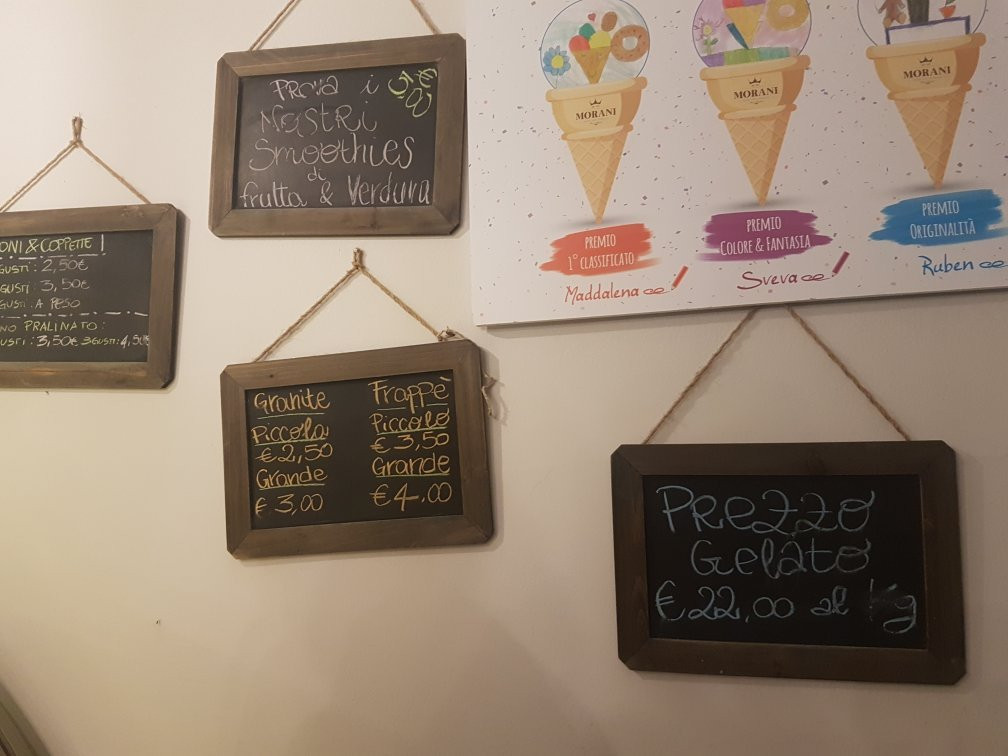 ONI & COPPETTE!
GUSTI: 2,50€
GUSTI: 3,50€
GUSTI: A PESO
NO PRALINATO:
GUSTI: 3,50€ 3GUSTI: 4,50€
PROVA i
NOSTRI
Smoothies
di
frutta & Verdura
Granite
Piccola
€ 2,50
Grande
€ 3,00
Frappè
Piccolo
€ 3,50
Grande
€ 4.00
MORANI
MORANI
MORANI
PREMIO
1° CLASSIFICATO
Maddalena
PREMIO
COLORE & FANTASIA
Sveva
PREMIO
ORIGINALITÀ
Ruben
PREZZO
Gelato
€ 22,00 al Kg